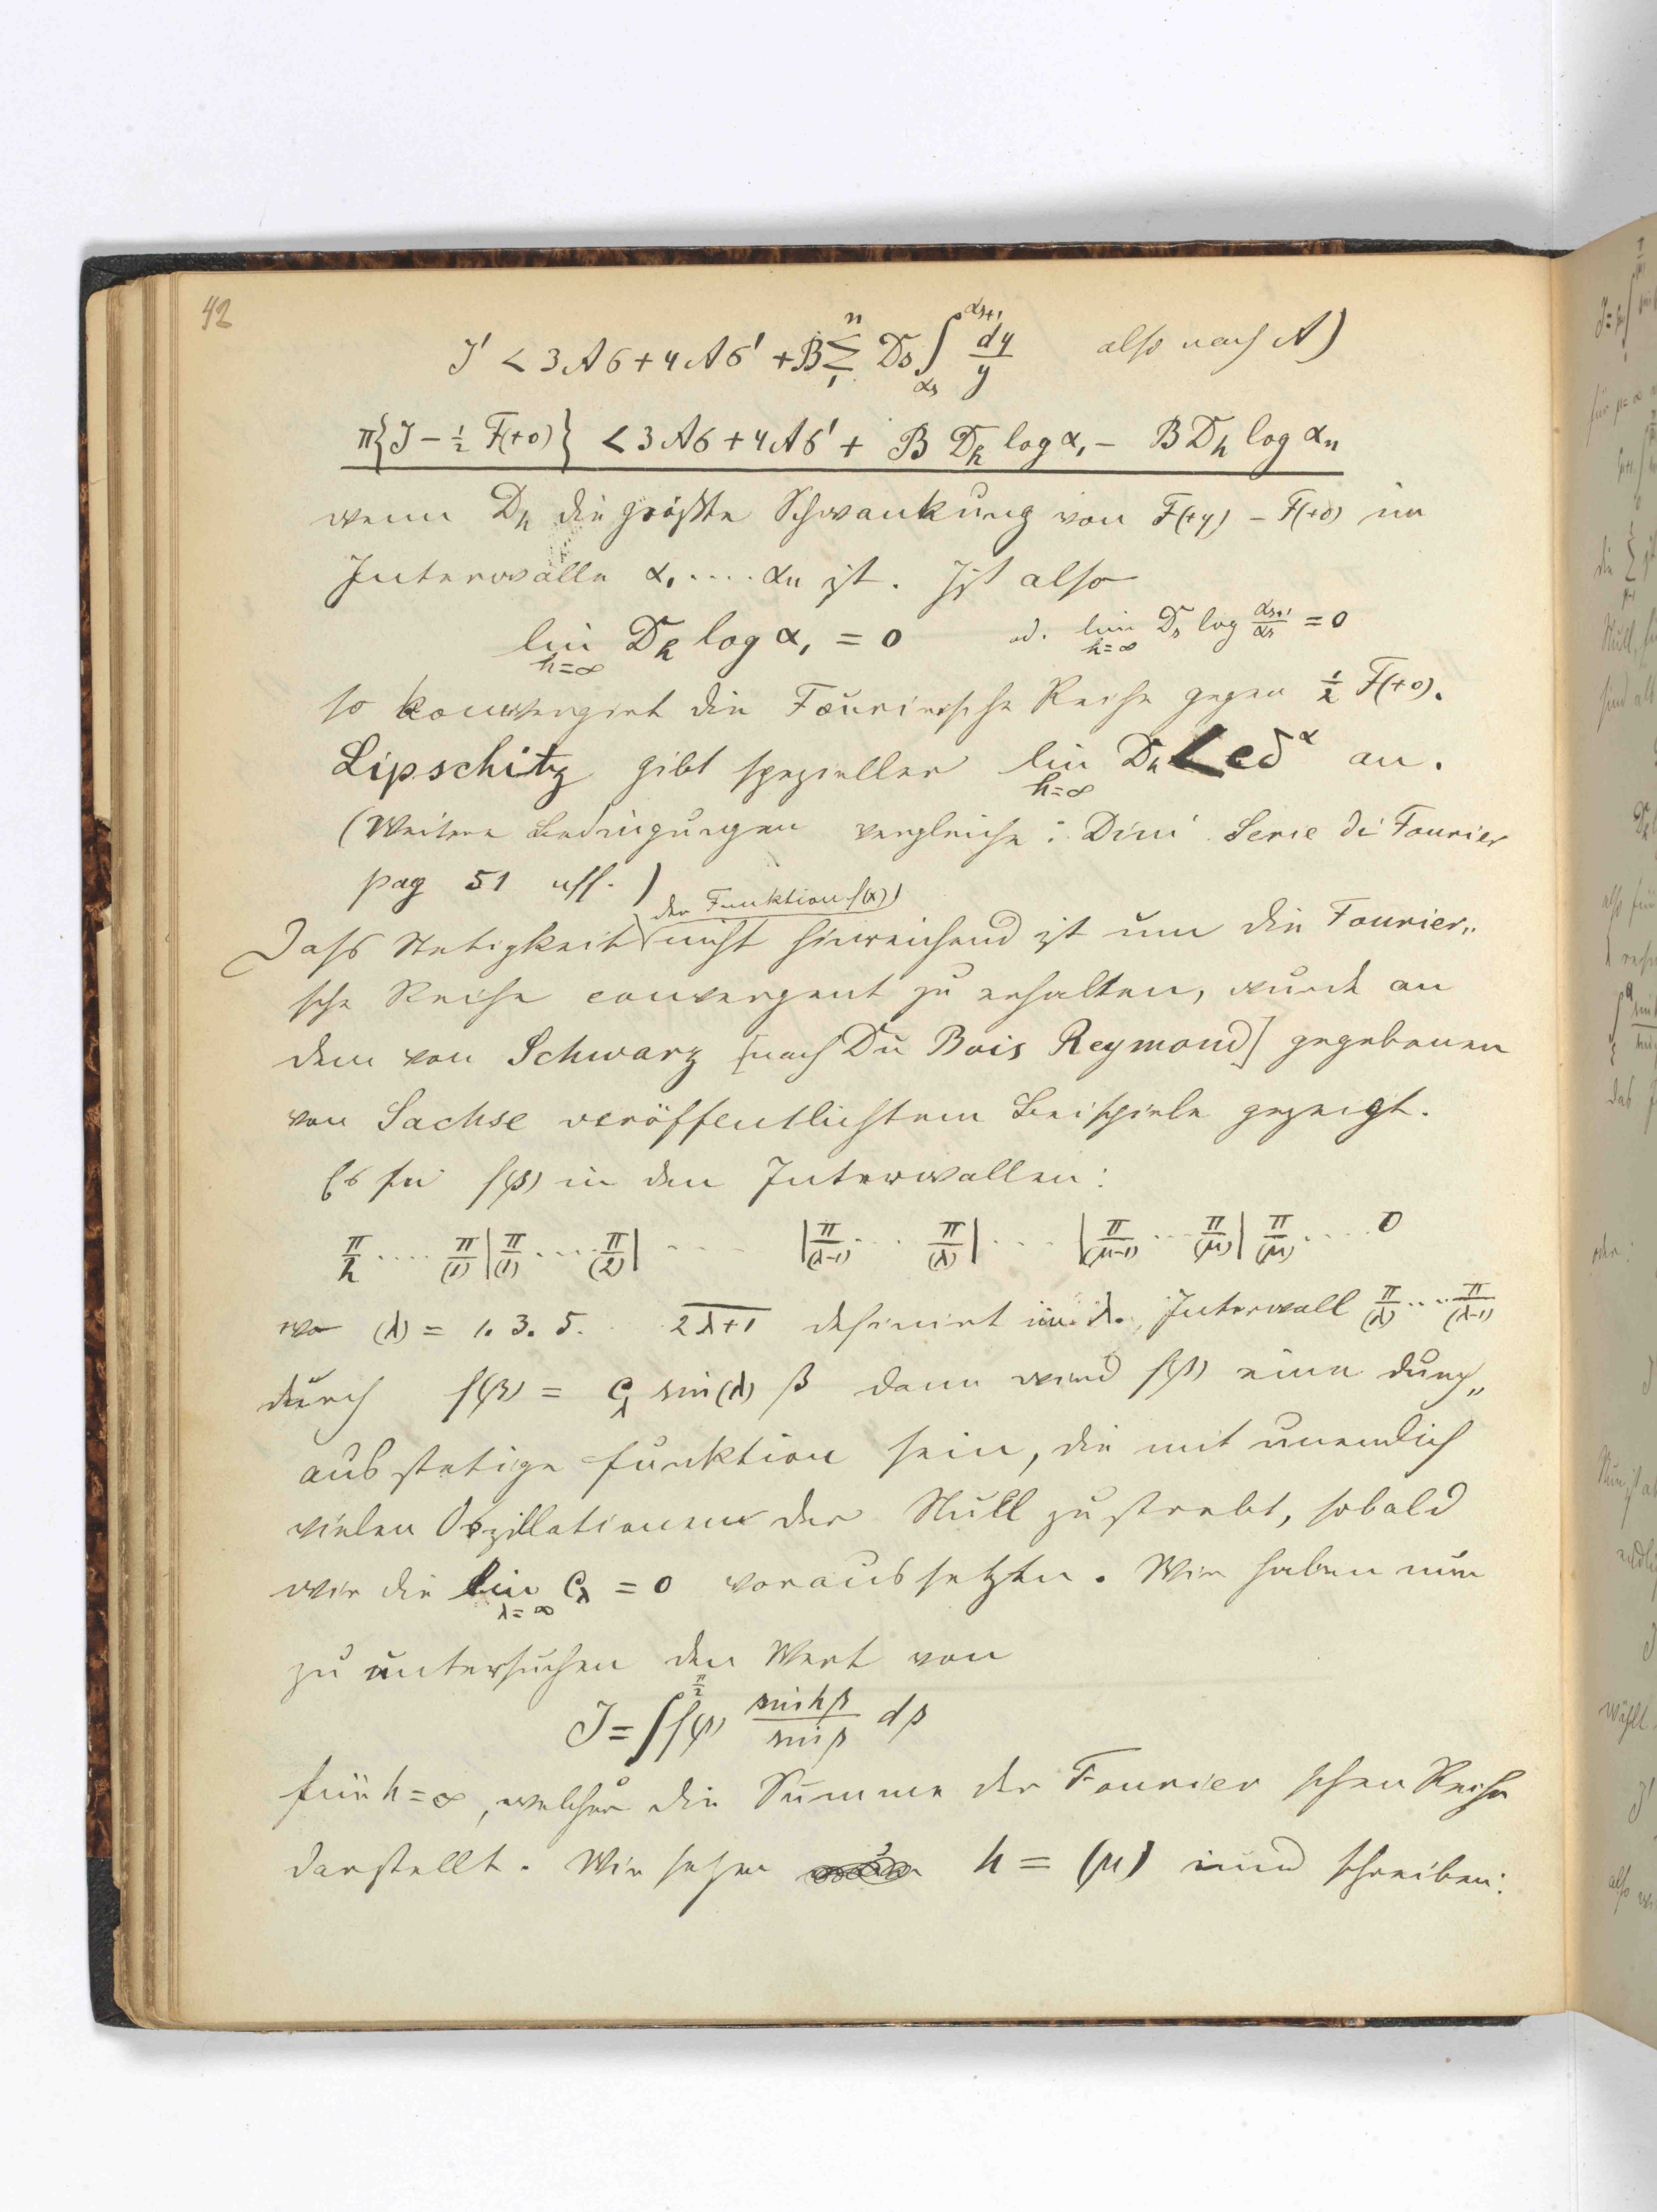 42
J' < 3Aσ + 4Aσ' + B Σ₁ⁿ Ds ∫_{αs}^{αs+1} dy/y also nach A)
π{J − ½ F(+0)} < 3Aσ + 4Aσ' + B Dh log α₁ − B Dh log αn
wenn Dh die größte Schwankung von F(+y) − F(+0) im
Intervalle α₁ .... αn ist. Ist also
lim_{h=∞} Dh log α₁ = 0 od. lim_{h=∞} Ds log αs+1/αs = 0
so konvergirt die Fourier'sche Reihe gegen ½ F(+0).
Lipschitz gibt spezieller lim_{h=∞} Dh < cδ^α an.
(Weitere Bedingungen vergleiche: Dini Serie di Fourier
pag 51 uff.)
der Funktion f(x)
Dass Stetigkeit nicht hinreichend ist um die Fourier„
sche Reihe convergent zu erhalten, wurde an
dem von Schwarz [nach Du Bois Reymond] gegebenen
von Sachse veröffentlichtem Beispiele gezeigt.
Es sei f(β) in den Intervallen:
π/2 .... π/(1) | π/(1) .... π/(2) | .... | π/(λ−1) ... π/(λ) | .... | π/(μ−1) ... π/(μ) | π/(μ) .... 0
wo (λ) = 1. 3. 5. .. 2λ+1 definirt im λ. Intervall π/(λ) .... π/(λ−1)
durch f(β) = cλ sin(λ) β dann wird f(β) eine durch„
aus stetige Funktion sein, die mit unendlich
vielen Oszillationen der Null zustrebt, sobald
wir die lim_{λ=∞} cλ = 0 voraussetzten. Wir haben nun
zu untersuchen den Wert von
J = ∫^{π/2} f(β) sin hβ / sin β dβ
für h = ∞, welcher die Summe der Fourier schen Reihe
darstellt. Wir setzen h = (μ) und schreiben: